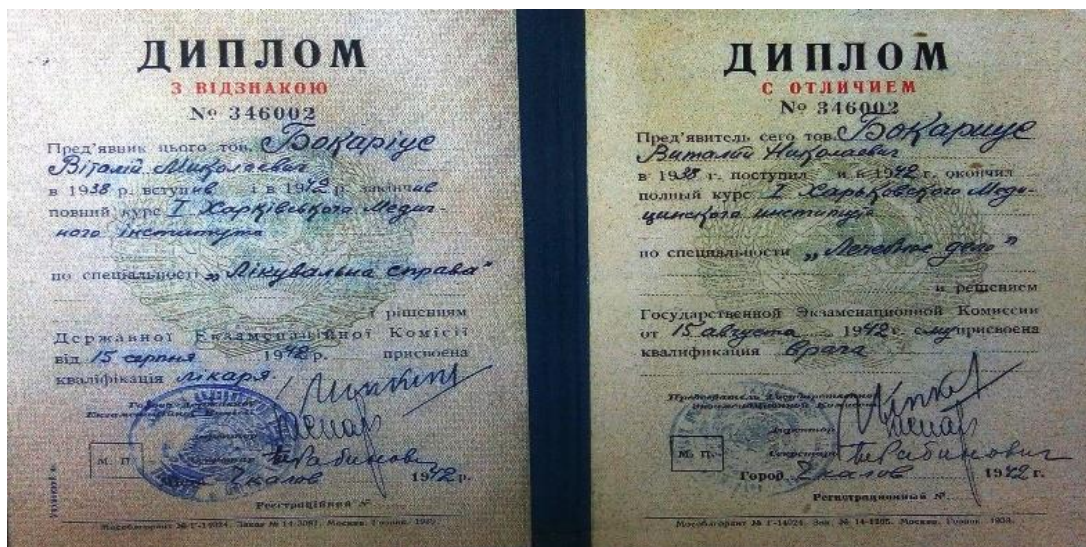 ДИПЛОМ
З ВІДЗНАКОЮ
№ 346002
Пред'явник цього тов. Бокаріус
Віталій Миколаєвич
в 1938 р. вступив і в 1942 р. закінчив
повний курс I Харківського Медич-
ного інститута
по спеціальності „Лікувальна справа"
і рішенням
Державної Екзаменаційної Комісії
від 15 серпня 1942 р. присвоєна
кваліфікація лікаря.
М. П.
Чкалов 1942 р.
Реєстраційний №
Мособлгорлит № Г-14024. Заказ № 14-3087. Москва, Гознак.
ДИПЛОМ
С ОТЛИЧИЕМ
№ 346002
Пред'явитель сего тов. Бокариус
Виталий Николаевич
в 1938 г. поступил и в 1942 г. окончил
полный курс I Харьковского Меди-
цинского института
по специальности „Лечебное дело"
и решением
Государственной Экзаменационной Комиссии
от 15 августа 1942 г. ему присвоена
квалификация врача
Председатель Государственной
Экзаменационной Комиссии
Директор
Секретарь Рабинович
М. П.
Город Чкалов 1942 г.
Регистрационный №
Мособлгорлит № Г-14024. Зак. № 14-1265. Москва. Гознак. 1938.